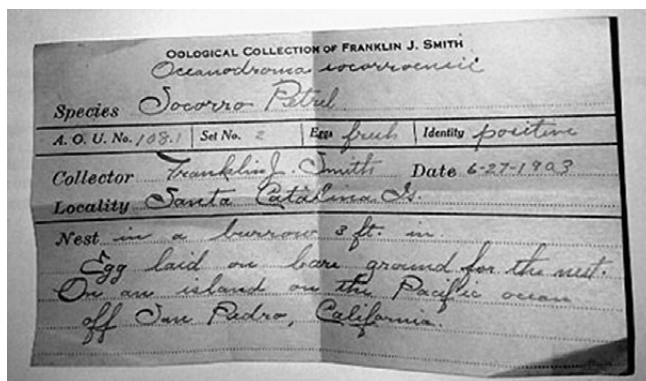 OOLOGICAL COLLECTION OF FRANKLIN J. SMITH
Oceanodroma socorroensis
Species Socorro Petrel
A. O. U. No. 108.1 Set No. 2 Eggs fresh Identity positive
Collector Franklin J. Smith Date 6-27-1903
Locality Santa Catalina Is.
Nest in a burrow 3 ft. in.
Egg laid on bare ground for the nest.
On an island on the Pacific ocean
off San Pedro, California.